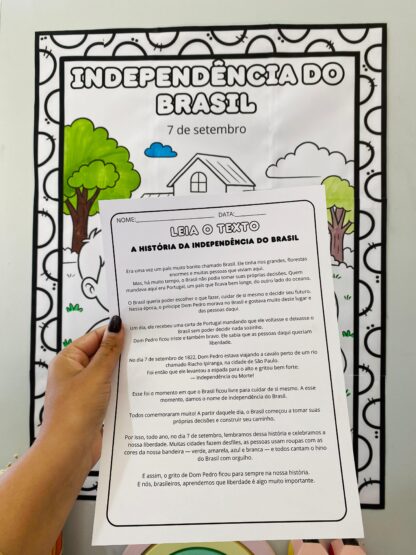 INDEPENDÊNCIA DO
BRASIL
7 de setembro
NOME: DATA:
LEIA O TEXTO
A HISTÓRIA DA INDEPENDÊNCIA DO BRASIL
Era uma vez um país muito bonito chamado Brasil. Ele tinha rios grandes, florestas
enormes e muitas pessoas que viviam aqui.
Mas, há muito tempo, o Brasil não podia tomar suas próprias decisões. Quem
mandava aqui era Portugal, um país que ficava bem longe, do outro lado do oceano.
O Brasil queria poder escolher o que fazer, cuidar de si mesmo e decidir seu futuro.
Nessa época, o príncipe Dom Pedro morava no Brasil e gostava muito desse lugar e
das pessoas daqui.
Um dia, ele recebeu uma carta de Portugal mandando que ele voltasse e deixasse o
Brasil sem poder decidir nada sozinho.
Dom Pedro ficou triste e também bravo. Ele sabia que as pessoas daqui queriam
liberdade.
No dia 7 de setembro de 1822, Dom Pedro estava viajando a cavalo perto de um rio
chamado Riacho Ipiranga, na cidade de São Paulo.
Foi então que ele levantou a espada para o alto e gritou bem forte:
— Independência ou Morte!
Esse foi o momento em que o Brasil ficou livre para cuidar de si mesmo. A esse
momento, damos o nome de Independência do Brasil.
Todos comemoraram muito! A partir daquele dia, o Brasil começou a tomar suas
próprias decisões e construir seu caminho.
Por isso, todo ano, no dia 7 de setembro, lembramos dessa história e celebramos a
nossa liberdade. Muitas cidades fazem desfiles, as pessoas usam roupas com as
cores da nossa bandeira — verde, amarela, azul e branca — e todos cantam o hino
do Brasil com orgulho.
E assim, o grito de Dom Pedro ficou para sempre na nossa história.
E nós, brasileiros, aprendemos que liberdade é algo muito importante.